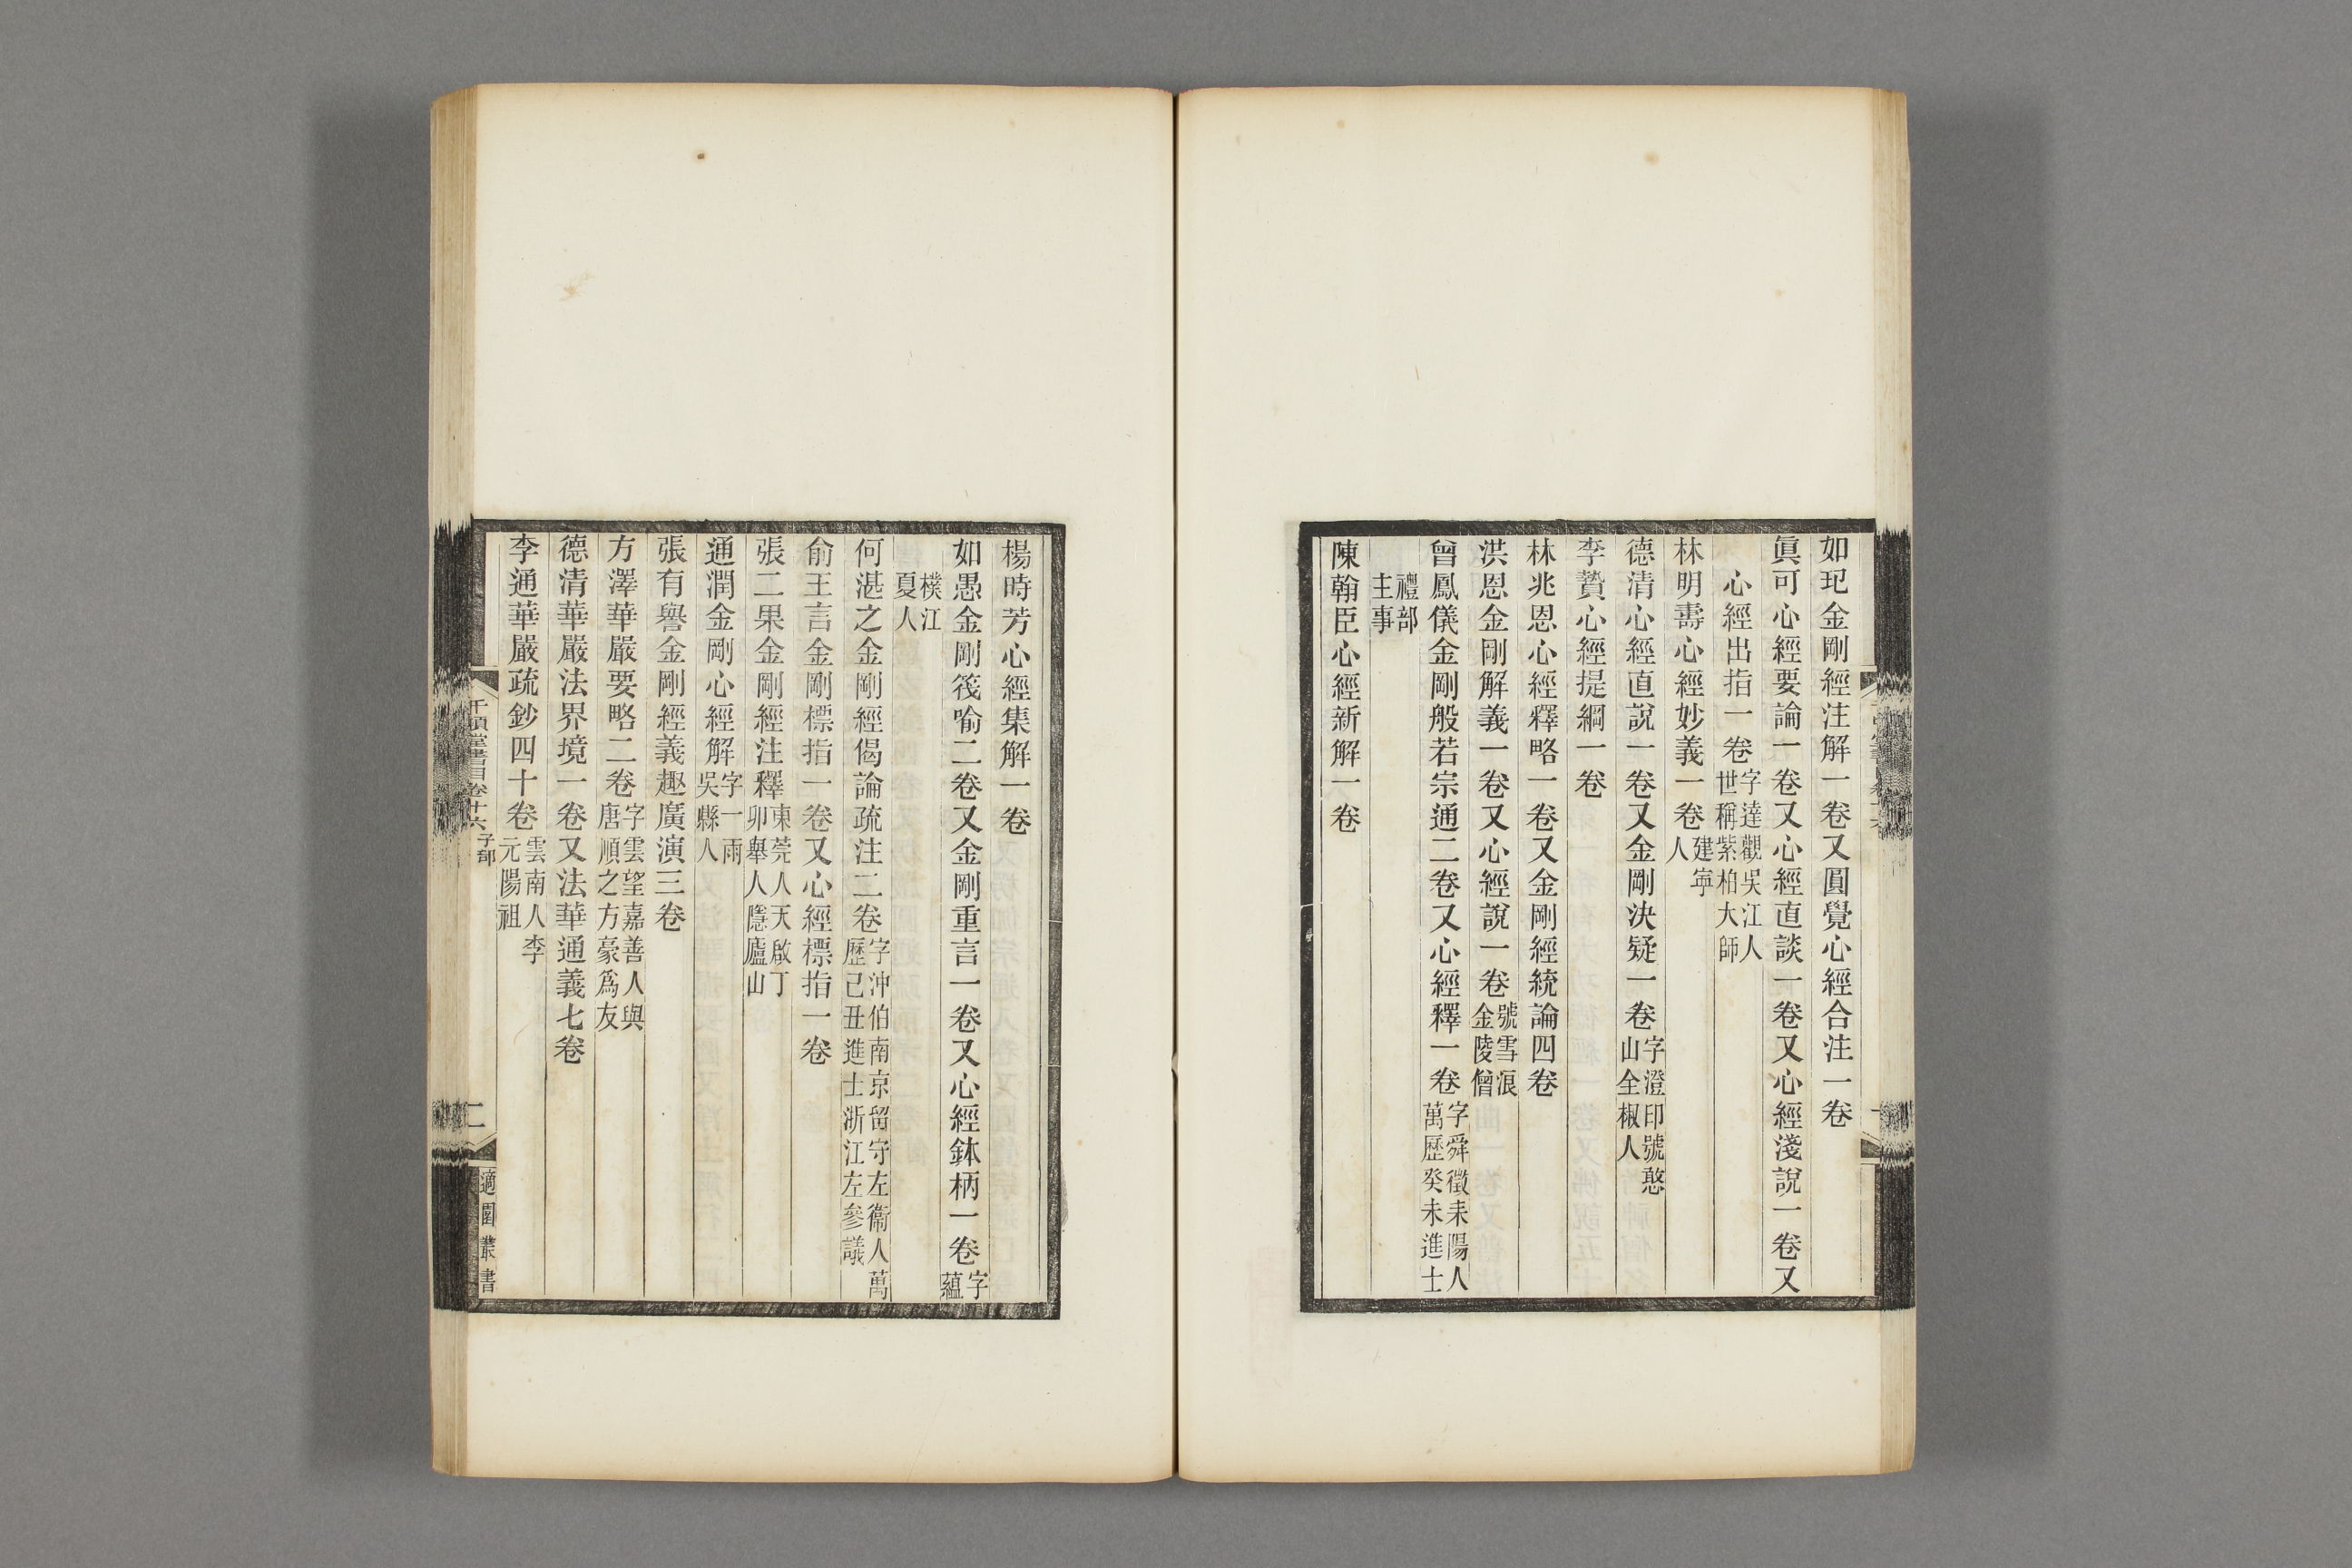 如玘金剛經注解一卷又圓覺心經合注一卷
眞可心經要論一卷又心經直談一卷又心經淺說一卷又
心經出指一卷字達觀吳江人世稱紫柏大師
林明壽心經妙義一卷建寧人
德清心經直說一卷又金剛決疑一卷字澄印號憨山全椒人
李贄心經提綱一卷
林兆恩心經釋略一卷又金剛經統論四卷
洪恩金剛解義一卷又心經說一卷號雪浪金陵僧
曾鳳儀金剛般若宗通二卷又心經釋一卷字舜徵耒陽人萬歷癸未進士
禮部主事
陳翰臣心經新解一卷
楊時芳心經集解一卷
如愚金剛筏喻二卷又金剛重言一卷又心經鉢柄一卷字蘊
樸江夏人
何湛之金剛經偈論疏注二卷字沖伯南京留守左衞人萬歷己丑進士浙江左參議
俞王言金剛標指一卷又心經標指一卷
張二果金剛經注釋東莞人天啟丁卯舉人隱廬山
通潤金剛心經解字一雨吳縣人
張有譽金剛經義趣廣演三卷
方澤華嚴要略二卷字雲望嘉善人與唐順之方豪爲友
德清華嚴法界境一卷又法華通義七卷
李通華嚴疏鈔四十卷雲南人李元陽祖
千頃堂書目卷十六子部
二
適園叢書